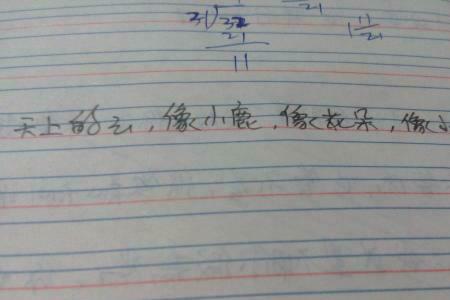 21
21
32
21
11
1 11/21
天上的云，像小鹿，像花朵，像小